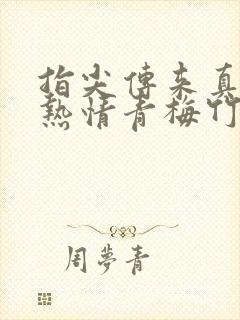 指尖傳来真
熱情青梅竹
周夢青